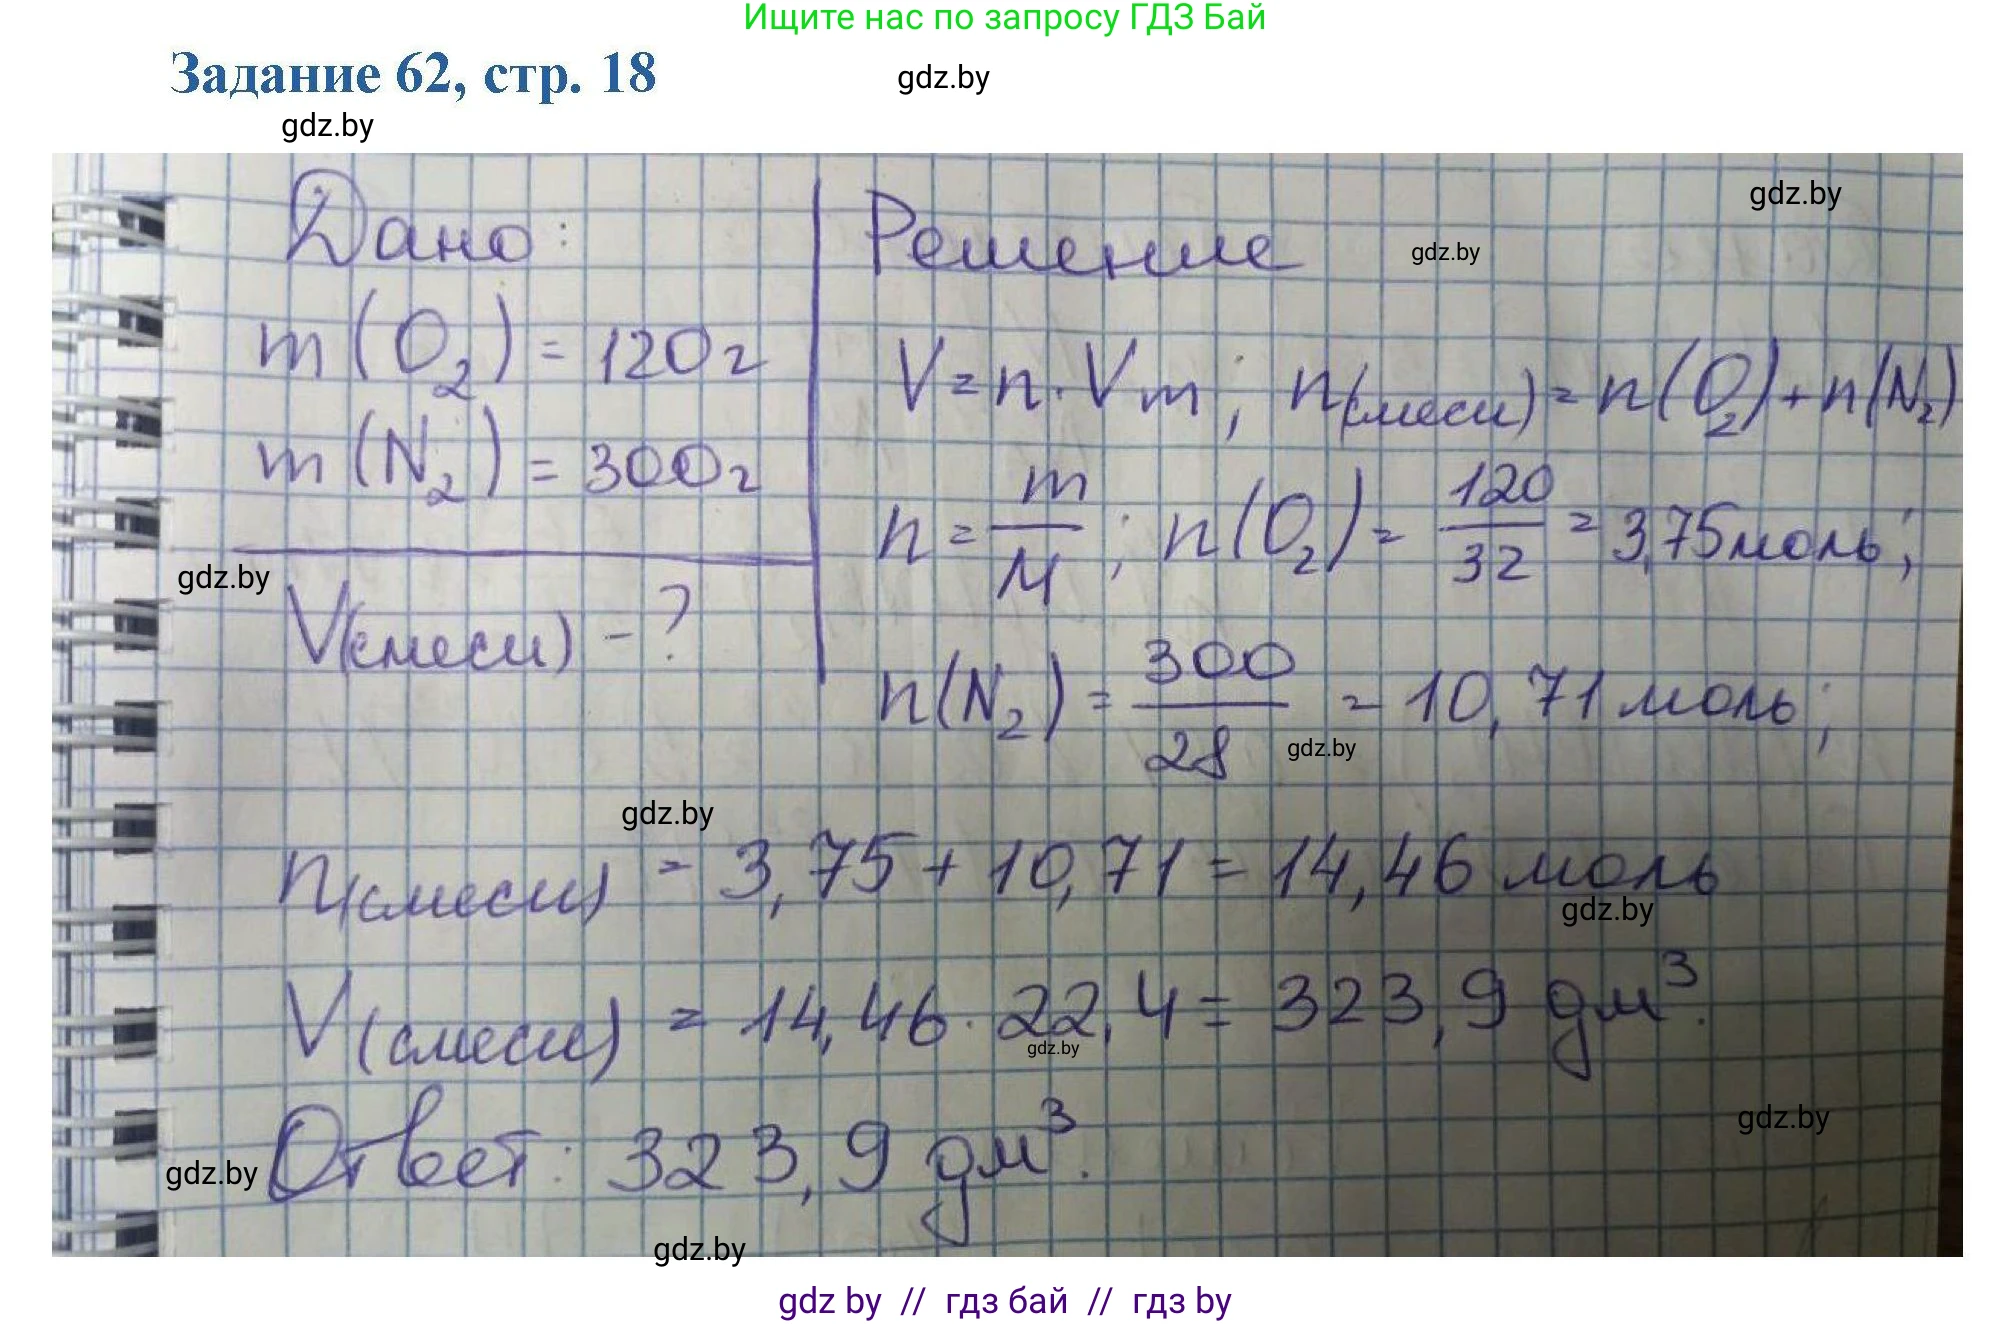 Ищите нас по запросу ГДЗ Бай
Задание 62, стр. 18
gdz.by
gdz.by
gdz.by
Дано:
m(O₂) = 120г
m(N₂) = 300г
gdz.by
V(смеси) - ?
Решение
gdz.by
V = n · Vm; n(смеси) = n(O₂) + n(N₂)
n = m/M; n(O₂) = 120/32 = 3,75 моль;
n(N₂) = 300/28 = 10,71 моль;
gdz.by
gdz.by
n(смеси) = 3,75 + 10,71 = 14,46 моль
gdz.by
V(смеси) = 14,46 · 22,4 = 323,9 дм³.
gdz.by
gdz.by
Ответ: 323,9 дм³.
gdz.by
gdz.by
gdz by // гдз бай // гдз by